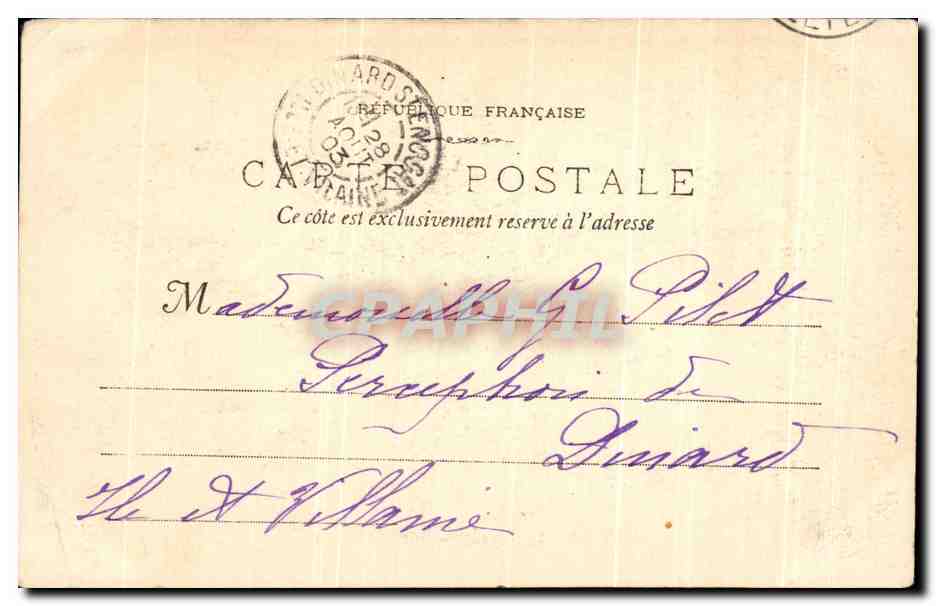 LETE
DINARD ST ENOGAT
28
AOUT
03
ILLE ET VILAINE
RÉPUBLIQUE FRANÇAISE
CARTE POSTALE
Ce côté est exclusivement reservé à l'adresse
Mademoiselle G Pilet
CPAPHIL
Perception de
Dinard
Ile et Villaine